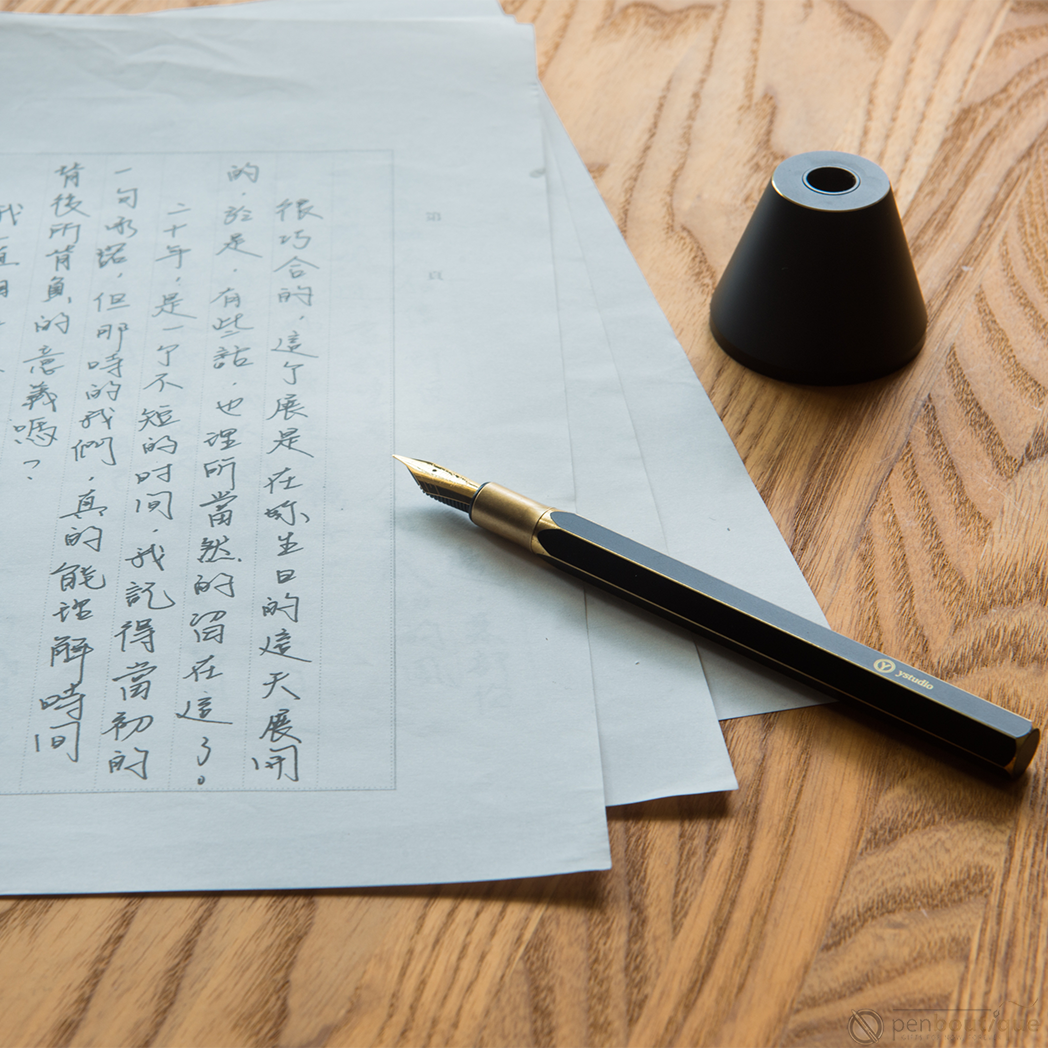 第 頁
很巧合的,這了展是在妳生日的這天展開
的,於是,有些話,也理所當然的留在這了。
二十年,是一个不短的时间,我記得當初的
一句承諾,但那時的我們,真的能理解時间
背後所背負的意義嗎?
我一直相
ystudio
penboutique